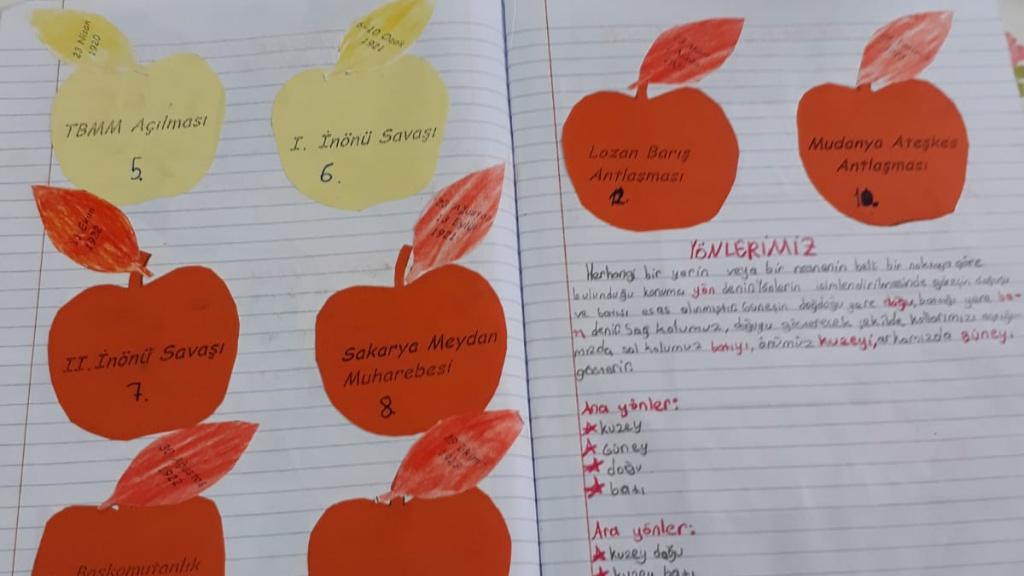 23 Nisan
1920
TBMM Açılması
5.
6-10 Ocak
1921
I. İnönü Savaşı
6.
II. İnönü Savaşı
7.
Sakarya Meydan
Muharebesi
8.
30 Ağustos
1922
Başkomutanlık
Lozan Barış
Antlaşması
12.
Mudanya Ateşkes
Antlaşması
YÖNLERİMİZ
Herhangi bir yerin veya bir nesnenin belli bir noktaya göre
bulunduğu konuma yön denir. Yönlerin isimlendirilmesinde güneşin doğuşu
ve batışı esas alınmıştır. Güneşin doğduğu yere doğu, battığı yere ba-
tı denir. Sağ kolumuz, doğuyu gösterecek şekilde kollarımızı
mızda sol kolumuz batıyı, önümüz kuzeyi, arkamızda güneyi
gösterir.
Ana yönler:
kuzey
Güney
doğu
batı
Ara yönler:
kuzey doğu
kuzey batı